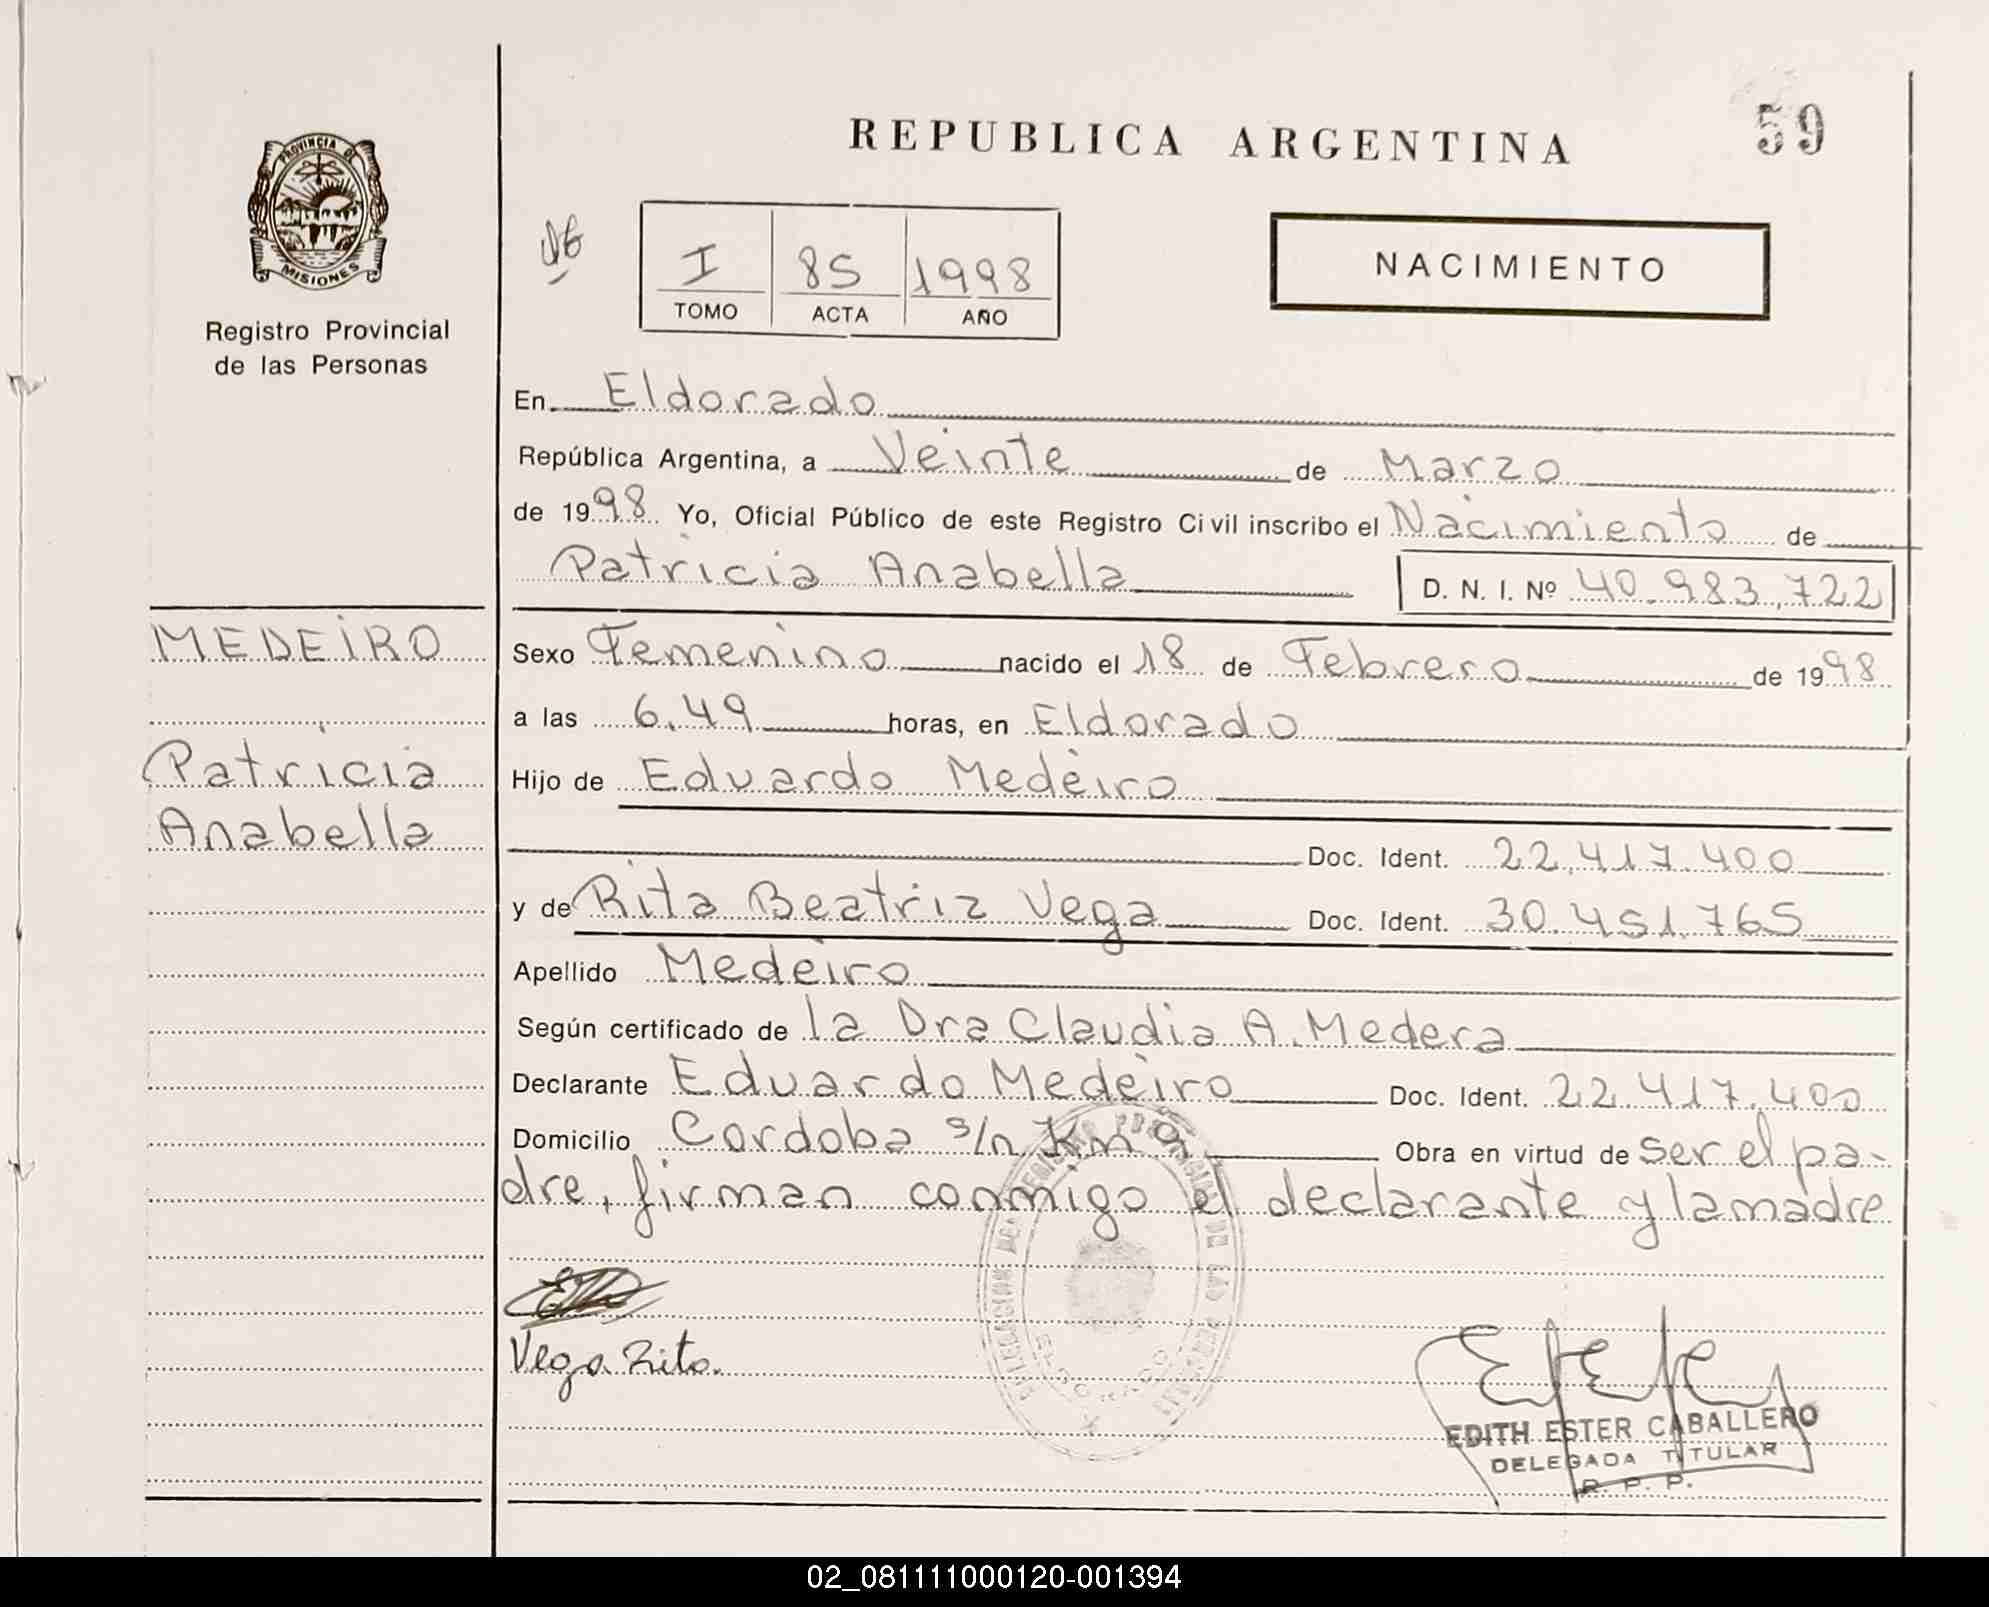 REPUBLICA ARGENTINA
59
PROVINCIA DE
MISIONES
Registro Provincial
de las Personas
I 85 1998
TOMO ACTA AÑO
NACIMIENTO
En Eldorado
República Argentina, a Veinte de Marzo
de 1998 Yo, Oficial Público de este Registro Civil inscribo el Nacimiento de
Patricia Anabella D. N. I. Nº 40.983.722
MEDEIRO
Patricia
Anabella
Sexo Femenino nacido el 18 de Febrero de 1998
a las 6.49 horas, en Eldorado
Hijo de Eduardo Medeiro
Doc. Ident. 22.417.400
y de Rita Beatriz Vega Doc. Ident. 30.451.765
Apellido Medeiro
Según certificado de la Dra Claudia A. Medera
Declarante Eduardo Medeiro Doc. Ident. 22.417.400
Domicilio Cordoba s/n Km 9 Obra en virtud de ser el pa-
dre, firman conmigo el declarante y la madre
Vega Rita.
DELEGACION DE REGISTRO PROVINCIAL DE LAS PERSONAS
ELDORADO
EDITH ESTER CABALLERO
DELEGADA TITULAR
R. P. P.
02_081111000120-001394